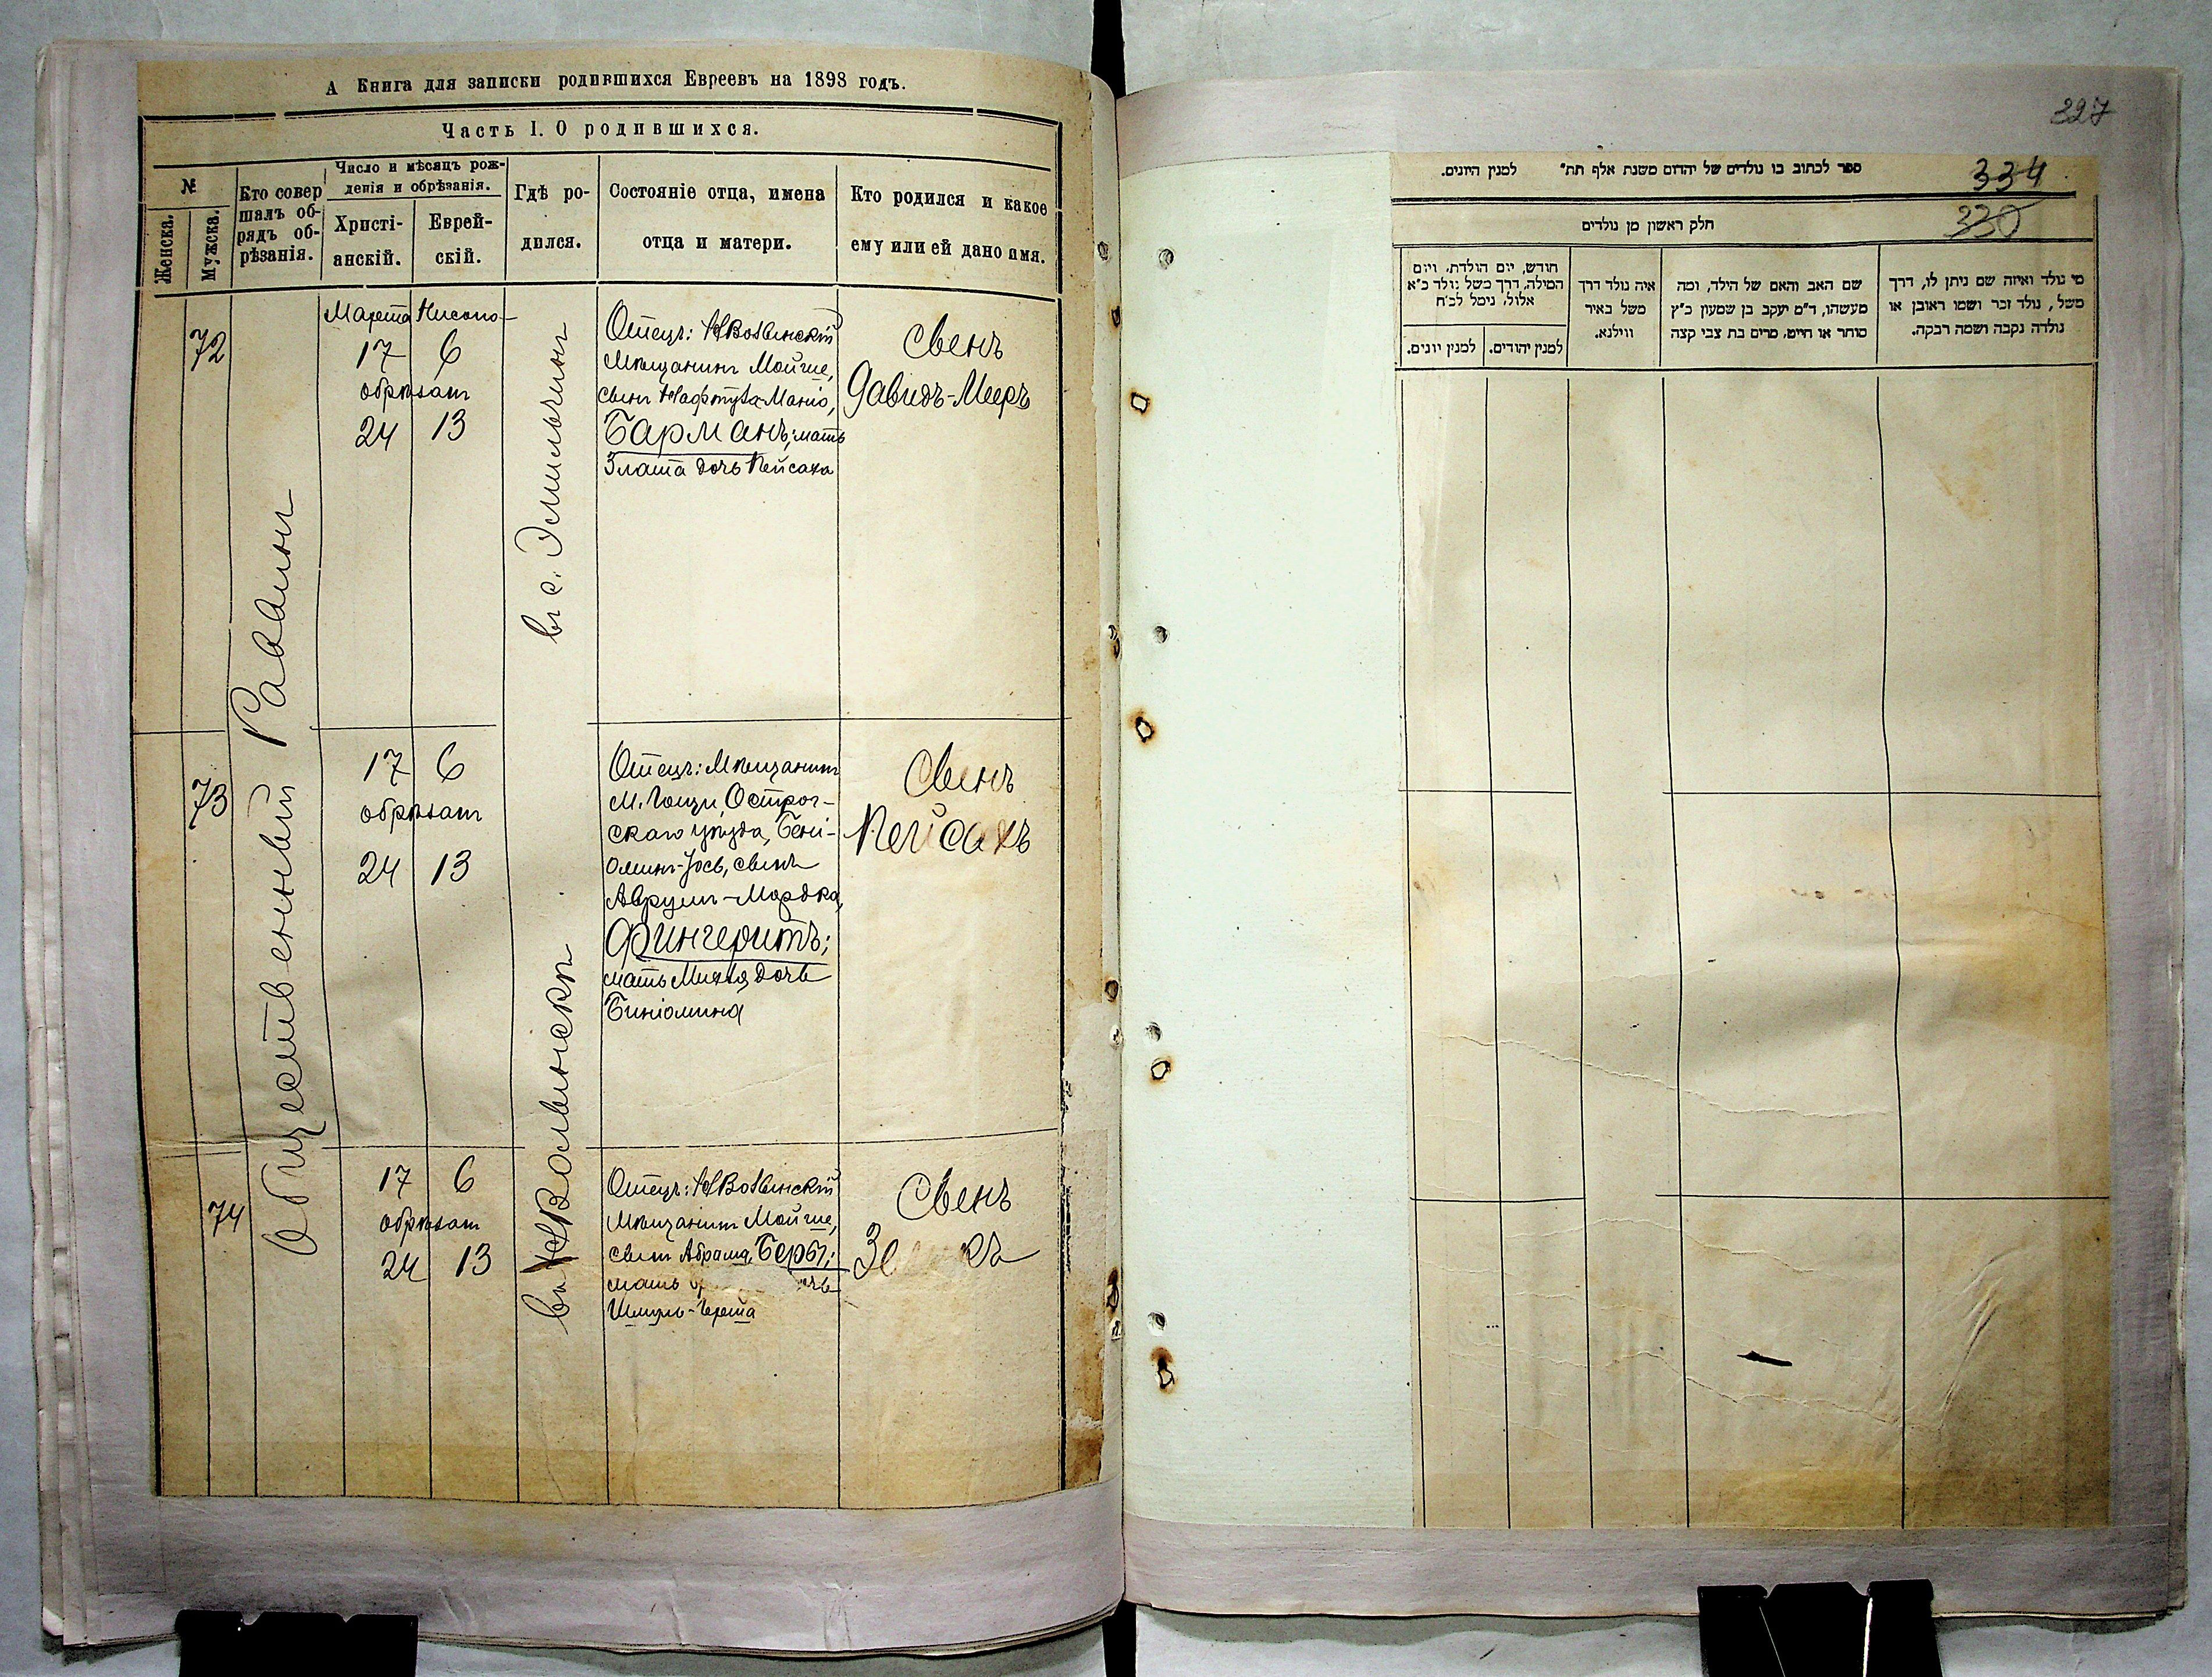 А Книга для записки родившихся Евреевъ на 1898 годъ.
Часть I. О родившихся.
№
Женска.
Мужска.
Кто совер
шалъ об-
рядъ об-
рѣзанія.
Число и мѣсяцъ рож-
денія и обрѣзанія.
Христі-
анскій.
Еврей-
скій.
Гдѣ ро-
дился.
Состояніе отца, имена
отца и матери.
Кто родился и какое
ему или ей дано имя.
Общественный Раввинъ
72
Марта
17 6
обрѣзанъ
24 13
въ с. Эмильчинъ
Отецъ: НВолынскій
Мѣщанинъ Мойше,
сынъ
Барманъ; мать
Злата дочь Пейсаха
Сынъ
Давидъ-Мееръ
73
17 6
обрѣзанъ
24 13
въ НВолынскѣ
Отецъ: Мѣщанинъ
м. Гощи Острог-
скаго уѣзда, Бені-
оминъ-Іось, сынъ
Аврумъ-Мордка,
Фингеритъ;
мать дочь
Биніомина
Сынъ
Пейсахъ
74
17 6
обрѣзанъ
24 13
Отецъ: НВолынскій
Мѣщанинъ Мойше,
сынъ Абрама, Бербъ;
мать
Шмуль-Герша
Сынъ
327
334
330
ספר לכתוב בו נולדים של יהדום משנת אלף תת״ למנין היונים.
חלק ראשון מן נולדים
מי נולד ואיזה שם ניתן לו, דרך
משל, נולד זכר ושמו ראובן או
נולדה נקבה ושמה רבקה.
שם האב והאם של הילד, ומה
מעשהו, ד״מ יעקב בן שמעון כ״ץ
סוחר או חייט, מרים בת צבי קצה
איה נולד דרך
משל באיר
ווילנא.
חודש, יום הולדת, ויום
המילה, דרך משל נולד כ״א
אלול, נימל לכ״ח
למנין יהודים.
למנין יונים.